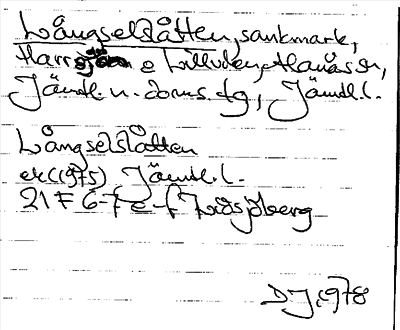 Långselslåtten, sankmark,
Harrsjön o Lillviken, Hanåsen,
Jämtl. n. doms. tg, Jämtl. l.
Långselslåtten
ek(1975) Jämtl. l.
21 F 6-7 e-f Lidsjöberg
DJ 1978